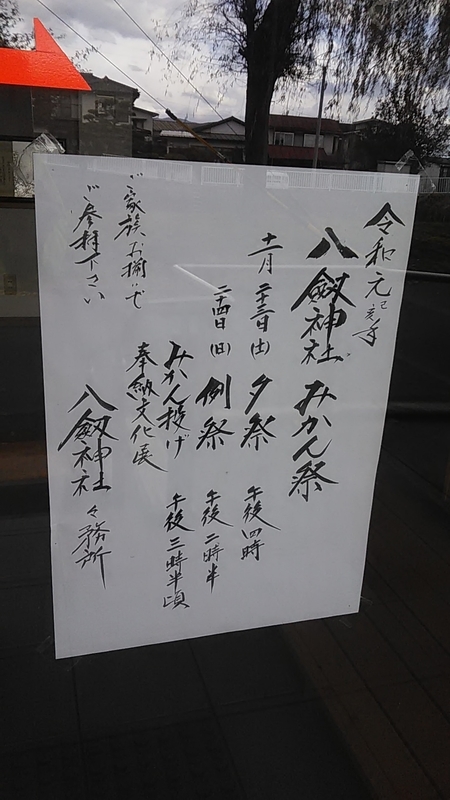 令和元己亥年
八剱神社 みかん祭
十一月 二十三日(土) 夕祭 午後四時
二十四日(日) 例祭 午後二時半
みかん投げ 午後三時半頃
奉納文化展
ご家族お揃いで
ご参拝下さい
八剱神社々務所